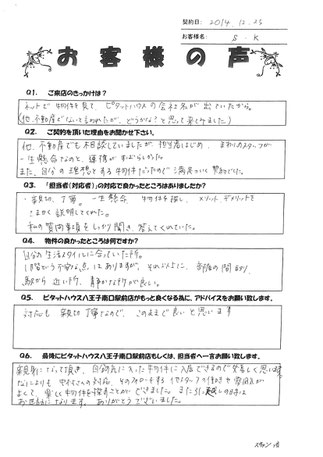 契約日: 2014.12.25
お客様名: S.K
お客様の声
Q1. ご来店のきっかけは?
ネットで物件を見て ピタットハウスの会社名が出ていたから。
(他不動産でないと言われたが、どうかな?と思って来ました)
Q2. ご契約を頂いた理由をお聞かせ下さい。
他、不動産でも相談していましたが 担当者はじめ、まわりのスタッフが
一生懸命なのと、連携がすばらしかった。
また、自分の理想とする物件だったので 満足がいく
Q3. 「担当者(対応者)」の対応で良かったところはありましたか?
・親切、丁寧。一生懸命 物件を探し、メリット、デメリットを
こまかく説明してくれた。
私の質問事項をしっかり聞き、答えてくれていた。
Q4. 物件の良かったところは何ですか?
自分の生活スタイルに合っていた所。
1階という不安な点はありますが、それ以上に、部屋の間取り、
駅から近い所、静かなところが良い所。
Q5. ピタットハウス八王子南口駅前店がもっと良くなる為に、アドバイスをお願い致します。
対応も親切丁寧なので、このままで良いと思います
Q6. 最後にピタットハウス八王子南口駅前店もしくは、担当者へ一言お願い致します。
親身になって頂き、自分の気に入った物件に入居できるので
よくて、楽しく物件を探すことができました。また引っ越しの時は
お世話になります。ありがとうございました。